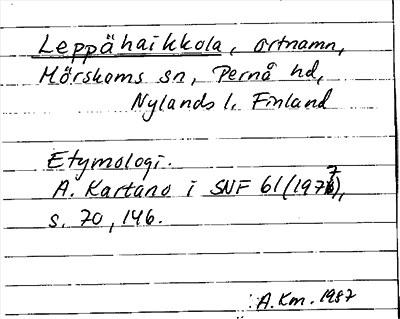 Leppähaikkola, ortnamn,
Mörskoms sn, Pernå hd,
Nylands l, Finland
Etymologi.
A. Kartano i SNF 61 (1977),
s. 70, 146.
A. Km. 1987